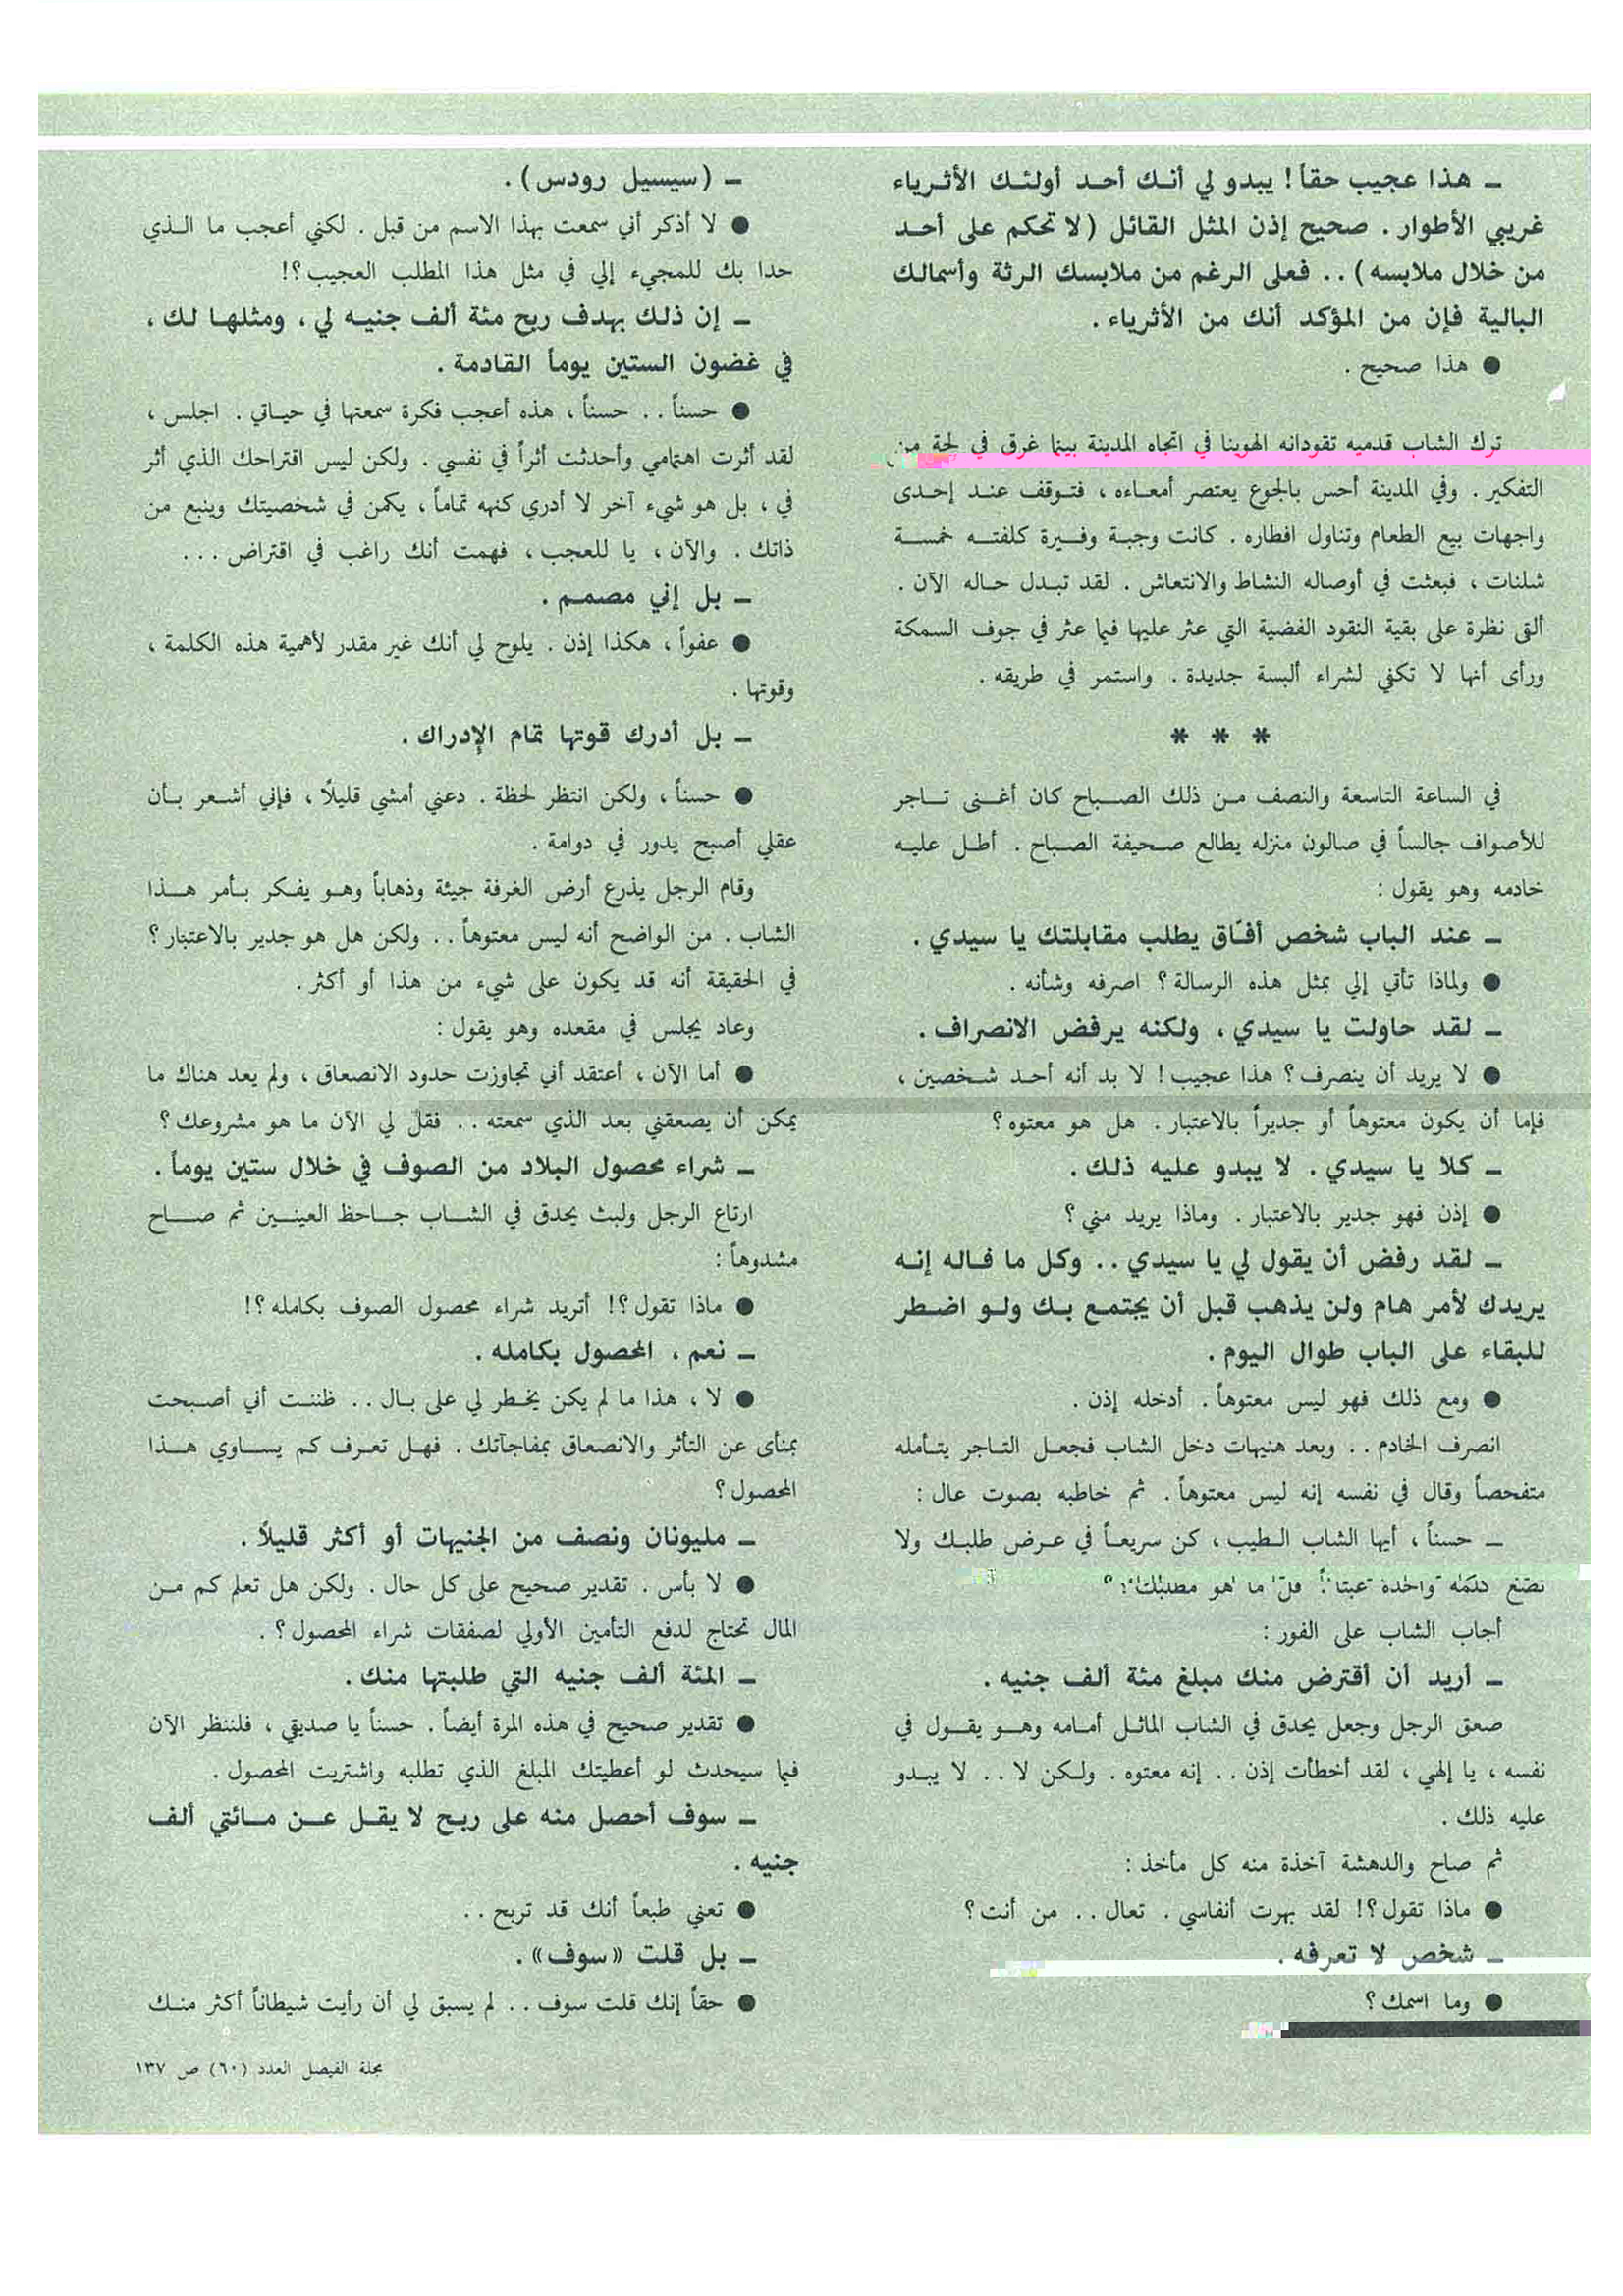 ـ هذا عجيب حقاً ! يبدو لي أنك أحد أولئك الأثرياء
غريبي الأطوار . صحيح إذن المثل القائل ( لا تحكم على أحد
من خلال ملابسه ) . . فعلى الرغم من ملابسك الرثة وأسمالك
البالية فإن من المؤكد أنك من الأثرياء .
● هذا صحيح .
ترك الشاب قدميه تقودانه الهوينا في اتجاه المدينة بينما غرق في لجة من
التفكير . وفي المدينة أحس بالجوع يعتصر أمعاءه ، فتوقف عند إحدى
واجهات بيع الطعام وتناول افطاره . كانت وجبة وفيرة كلفته خمسة
شلنات ، فبعثت في أوصاله النشاط والانتعاش . لقد تبدل حاله الآن .
ألقى نظرة على بقية النقود الفضية التي عثر عليها فيما عثر في جوف السمكة
ورأى أنها لا تكفي لشراء ألبسة جديدة . واستمر في طريقه .
* * *
في الساعة التاسعة والنصف من ذلك الصباح كان أغنى تاجر
للأصواف جالساً في صالون منزله يطالع صحيفة الصباح . أطل عليه
خادمه وهو يقول :
ـ عند الباب شخص أفّاق يطلب مقابلتك يا سيدي .
● ولماذا تأتي إلي بمثل هذه الرسالة ؟ اصرفه وشأنه .
ـ لقد حاولت يا سيدي ، ولكنه يرفض الانصراف .
● لا يريد أن ينصرف ؟ هذا عجيب ! لا بد أنه أحد شخصين ،
فإما أن يكون معتوهاً أو جديراً بالاعتبار . هل هو معتوه ؟
ـ كلا يا سيدي . لا يبدو عليه ذلك .
● إذن فهو جدير بالاعتبار . وماذا يريد مني ؟
ـ لقد رفض أن يقول لي يا سيدي . . وكل ما قاله إنه
يريدك لأمر هام ولن يذهب قبل أن يجتمع بك ولو اضطر
للبقاء على الباب طوال اليوم .
● ومع ذلك فهو ليس معتوهاً . أدخله إذن .
انصرف الخادم . . وبعد هنيهات دخل الشاب فجعل التاجر يتأمله
متفحصاً وقال في نفسه إنه ليس معتوهاً . ثم خاطبه بصوت عال :
ـ حسناً ، أيها الشاب الطيب ، كن سريعاً في عرض طلبك ولا
كلمة واحدة عبثاً . قل ما هو مطلبك ؟
أجاب الشاب على الفور :
ـ أريد أن أقترض منك مبلغ مئة ألف جنيه .
صعق الرجل وجعل يحدق في الشاب الماثل أمامه وهو يقول في
نفسه ، يا إلهي ، لقد أخطأت إذن . . إنه معتوه . ولكن لا . . لا يبدو
عليه ذلك .
ثم صاح والدهشة آخذة منه كل مأخذ :
● ماذا تقول ؟! لقد بهرت أنفاسي . تعال . . من أنت ؟
ـ شخص لا تعرفه .
● وما اسمك ؟
ـ ( سيسيل رودس ) .
● لا أذكر أني سمعت بهذا الاسم من قبل . لكني أعجب ما الذي
حدا بك للمجيء إلي في مثل هذا المطلب العجيب ؟!
ـ إن ذلك بهدف ربح مئة ألف جنيه لي ، ومثلها لك ،
في غضون الستين يوماً القادمة .
● حسناً . . حسناً ، هذه أعجب فكرة سمعتها في حياتي . اجلس ،
لقد أثرت اهتمامي وأحدثت أثراً في نفسي . ولكن ليس اقتراحك الذي أثر
في ، بل هو شيء آخر لا أدري كنهه تماماً ، يكمن في شخصيتك وينبع من
ذاتك . والآن ، يا للعجب ، فهمت أنك راغب في اقتراض . . .
ـ بل إني مصمم .
● عفواً ، هكذا إذن . يلوح لي أنك غير مقدر لأهمية هذه الكلمة ،
وقوتها .
ـ بل أدرك قوتها تمام الإدراك .
● حسناً ، ولكن انتظر لحظة . دعني أمشي قليلاً ، فإني أشعر بأن
عقلي أصبح يدور في دوامة .
وقام الرجل يذرع أرض الغرفة جيئة وذهاباً وهو يفكر بأمر هذا
الشاب . من الواضح أنه ليس معتوهاً . . ولكن هل هو جدير بالاعتبار ؟
في الحقيقة أنه قد يكون على شيء من هذا أو أكثر .
وعاد يجلس في مقعده وهو يقول :
● أما الآن ، أعتقد أني تجاوزت حدود الانصعاق ، ولم يعد هناك ما
يمكن أن يصعقني بعد الذي سمعته . . فقل لي الآن ما هو مشروعك ؟
ـ شراء محصول البلاد من الصوف في خلال ستين يوماً .
ارتاع الرجل ولبث يحدق في الشاب جاحظ العينين ثم صاح
مشدوهاً :
● ماذا تقول ؟! أتريد شراء محصول الصوف بكامله ؟!
ـ نعم ، المحصول بكامله .
● لا ، هذا ما لم يكن يخطر لي على بال . . ظننت أني أصبحت
بمنأى عن التأثر والانصعاق بمفاجآتك . فهل تعرف كم يساوي هذا
المحصول ؟
ـ مليونان ونصف من الجنيهات أو أكثر قليلاً .
● لا بأس . تقدير صحيح على كل حال . ولكن هل تعلم كم من
المال تحتاج لدفع التأمين الأولي لصفقات شراء المحصول ؟ .
ـ المئة ألف جنيه التي طلبتها منك .
● تقدير صحيح في هذه المرة أيضاً . حسناً يا صديقي ، فلننظر الآن
فيما سيحدث لو أعطيتك المبلغ الذي تطلبه واشتريت المحصول .
ـ سوف أحصل منه على ربح لا يقل عن مائتي ألف
جنيه .
● تعني طبعاً أنك قد تربح . .
ـ بل قلت «سوف» .
● حقاً إنك قلت سوف . . لم يسبق لي أن رأيت شيطاناً أكثر منك
مجلة الفيصل العدد (٦٠) ص ١٣٧